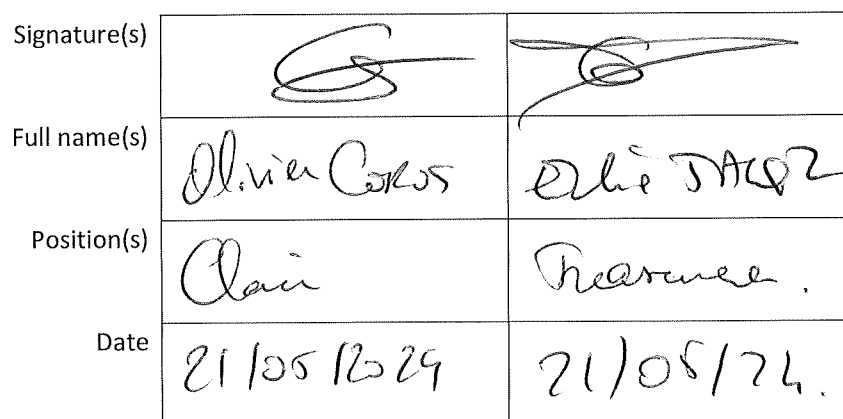 Signature(s)
Full name(s) Olivier
Position(s) Chair Treasurer.
Date 21/05/2024 21/05/24.